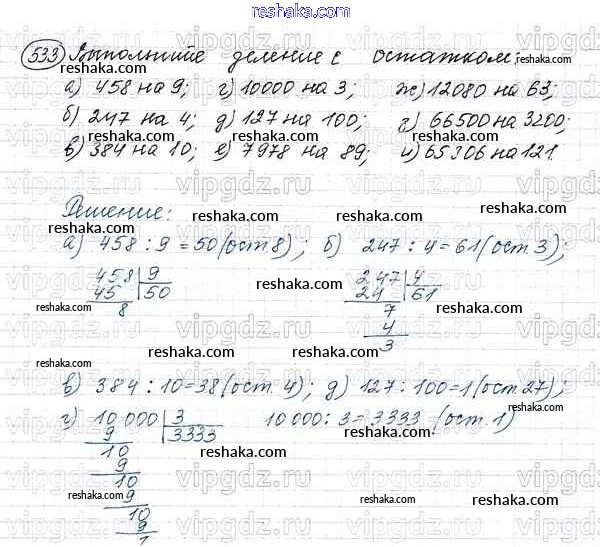 reshaka.com
533 Выполните деление с остатком:
а) 458 на 9; г) 10000 на 3; ж) 12080 на 63;
б) 247 на 4; д) 127 на 100; г) 66500 на 3200;
в) 384 на 10; е) 7978 на 89; и) 65306 на 121.
Решение:
а) 458 : 9 = 50 (ост. 8); б) 247 : 4 = 61 (ост. 3);
458 | 9 247 | 4
45 50 24 61
8 7
4
3
в) 384 : 10 = 38 (ост. 4); д) 127 : 100 = 1 (ост. 27);
г) 10 000 | 3 10 000 : 3 = 3333 (ост. 1)
9 3333
10
9
10
9
10
9
1
reshaka.com
vipgdz.ru